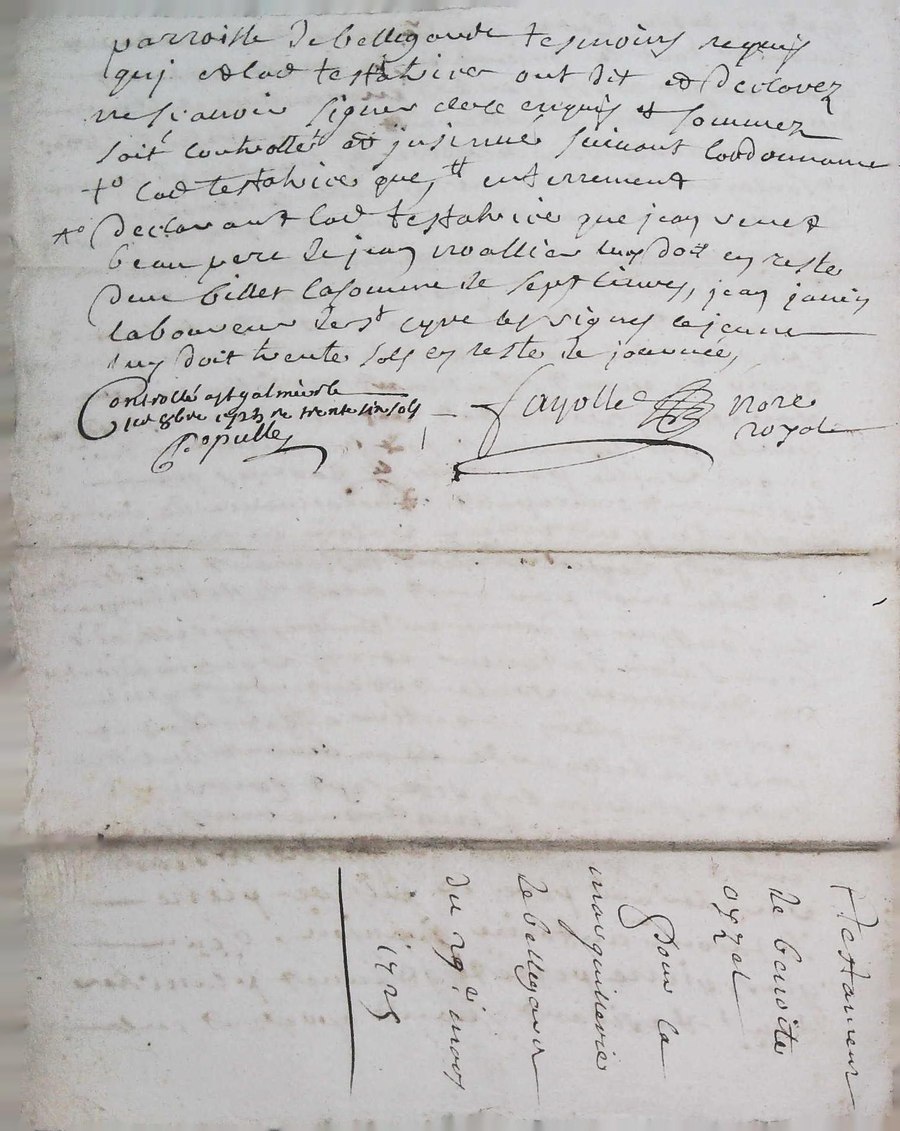 parroisse de bellegarde tesmoins requis
quj et lad testatrice ont dit et declarez
ne scavoir signer de ce enquis et sommez
soit controllé et jnsinué suivant lordonnance
+o lad testatrice que enterrement
+o declarant lad testatrice que jean venet
beau pere de jean noallier luy doit en reste
dun billet la somme de sept livres, jean janin
laboureur de st cyre les vignes le jeune
luy doit trente sols en reste de journées
Controllé a st galmier le
1er 8bre 1725 re trente six sols
Populle
fayolle nore
royal
testament
de benoite
ozel
pour la
marguillerie
de bellegarde
du 29e mars
1725